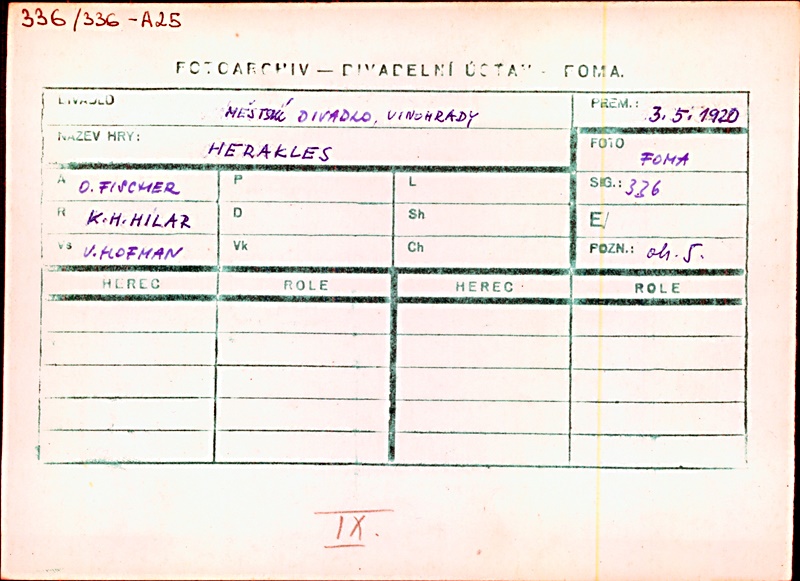 336/336-A25
FOTOARCHIV — DIVADELNÍ ÚSTAV - FOMA.
DIVADLO MĚSTSKÉ DIVADLO, VINOHRADY PREM.: 3.5.1920
NÁZEV HRY: HERAKLES FOTO FOMA
A O. FISCHER P L SIG.: 336
R K.H.HILAR D Sh E/
VS V.HOFMAN Vk Ch POZN.: ob. 5.
HEREC ROLE HEREC ROLE
IX.